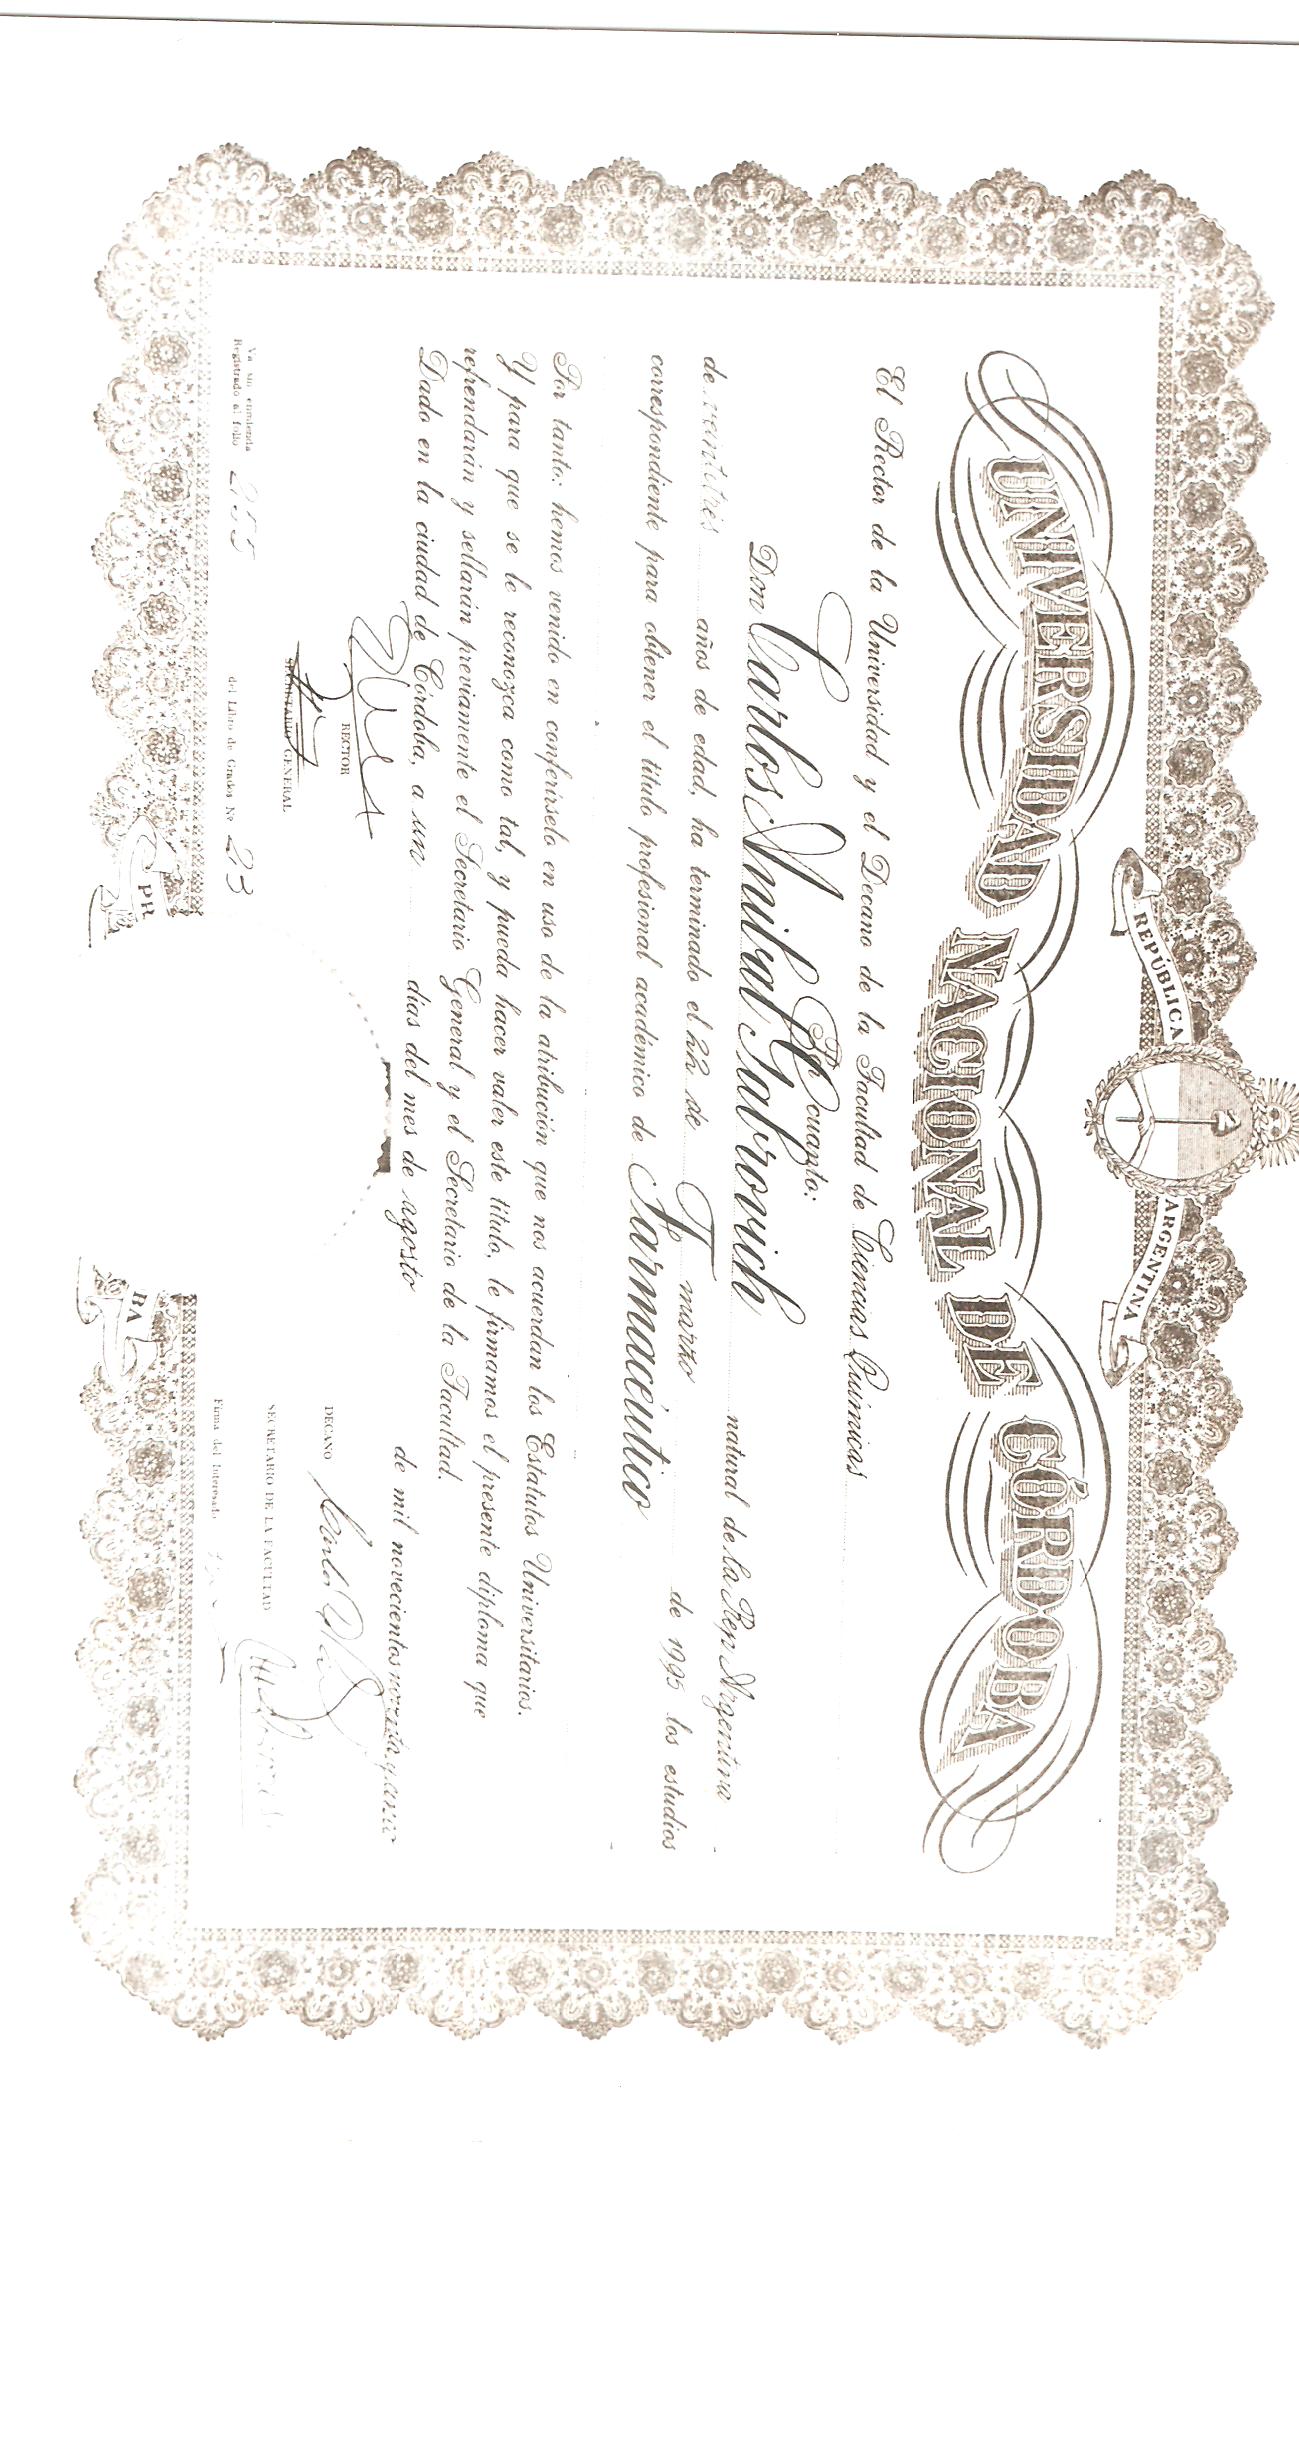 REPÚBLICA ARGENTINA
UNIVERSIDAD NACIONAL DE CÓRDOBA
El Rector de la Universidad y el Decano de la Facultad de Ciencias Químicas
Por cuanto:
Don Carlos Anibal Gabrovich natural de la Rep Argentina
de veintitrés años de edad, ha terminado el 22 de marzo de 1995 los estudios
correspondiente para obtener el título profesional académico de Farmacéutico
Por tanto: hemos venido en conferírselo en uso de la atribución que nos acuerdan los Estatutos Universitarios.
Y para que se le reconozca como tal, y pueda hacer valer este título, le firmamos el presente diploma que
refrendarán y sellarán previamente el Secretario General y el Secretario de la Facultad.
Dado en la ciudad de Córdoba, a un días del mes de agosto de mil novecientos noventa y cinco
RECTOR
DECANO
SECRETARIO GENERAL
SECRETARIO DE LA FACULTAD
Va sin enmienda
Registrado al folio 255 del Libro de Grados Nº 23
Firma del Interesado
PR
BA